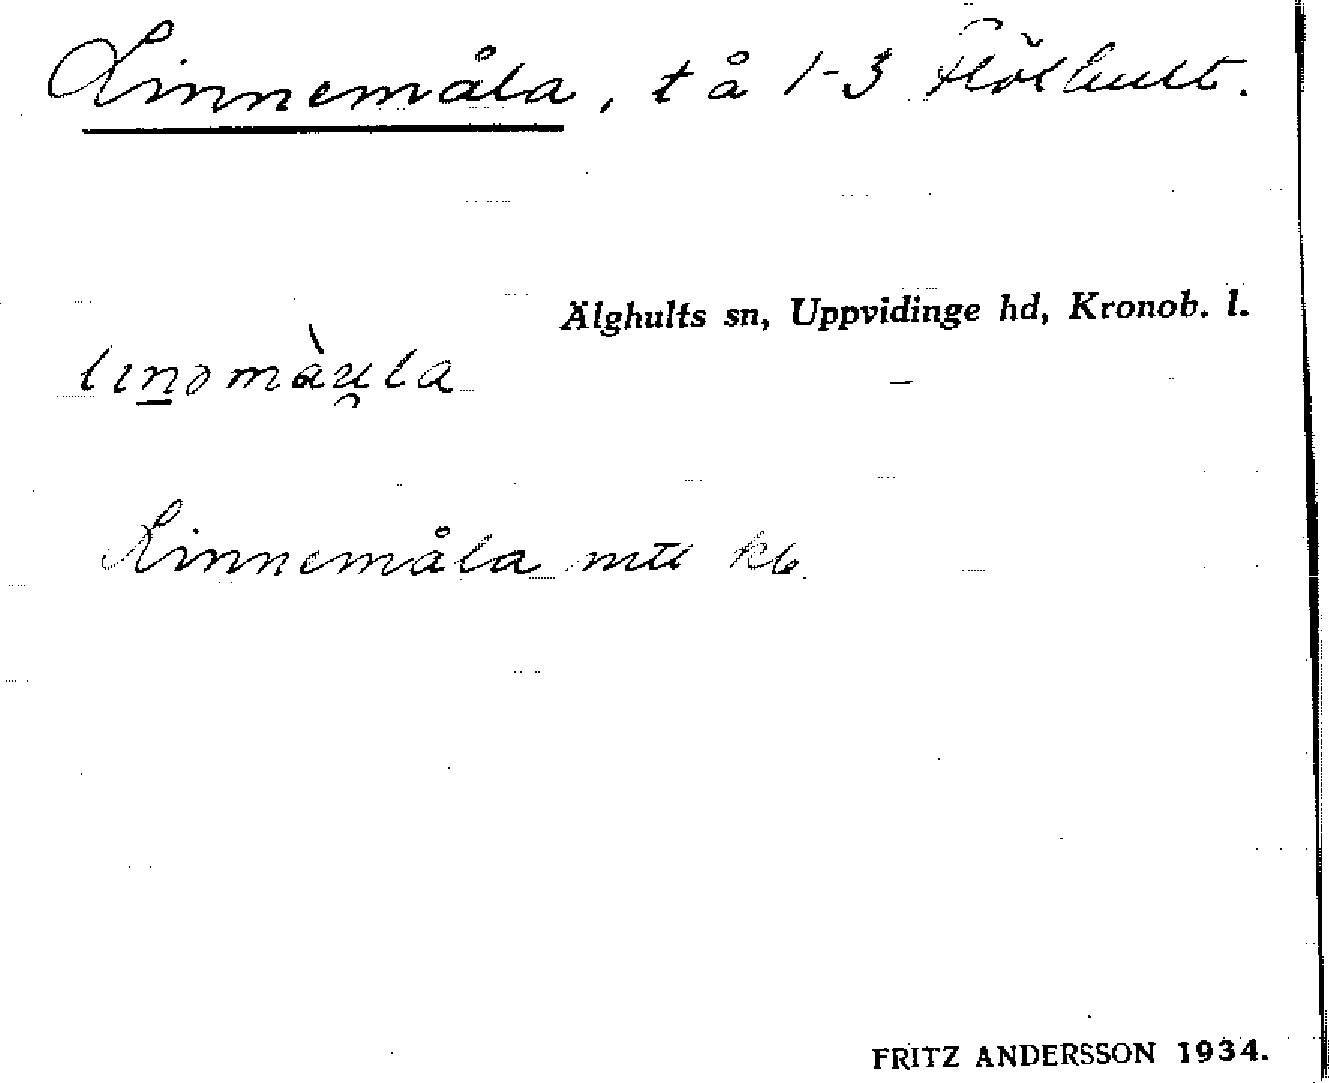 Linnemåla, t å 1-3 Flöxhult.
Älghults sn, Uppvidinge hd, Kronob. l.
linəmàu̯la
Linnemåla mtl kb
FRITZ ANDERSSON 1934.